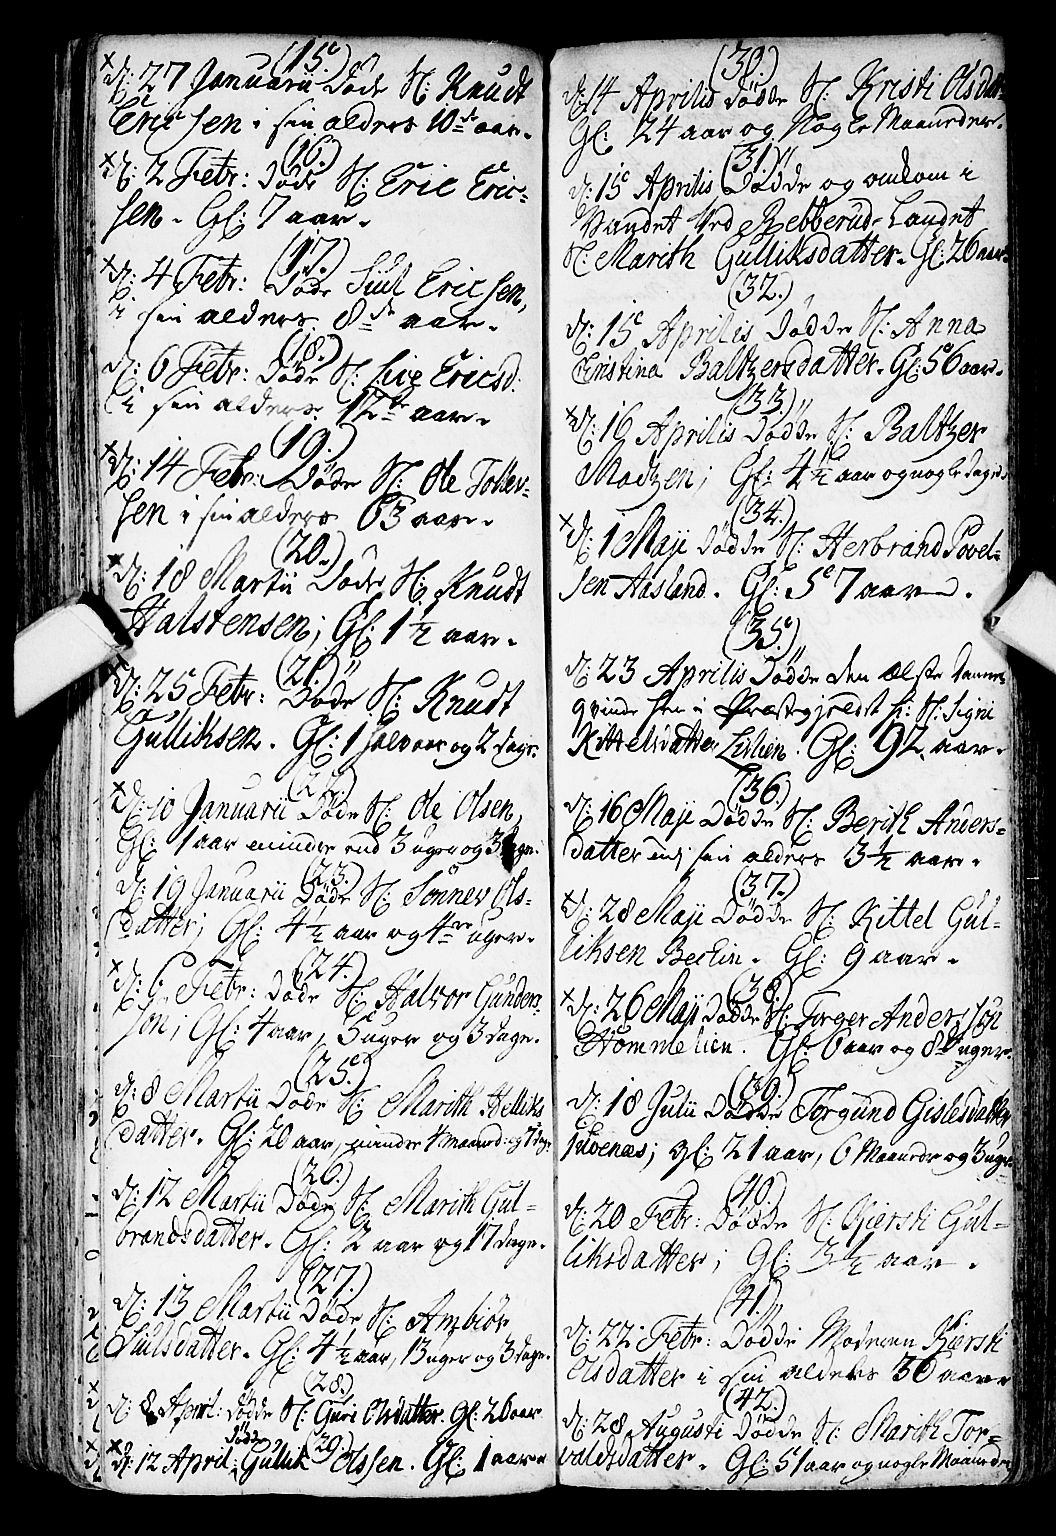 (15.)
D: 27 Januarii Døde N: Knudt
Ericsen i sin alders 10de aar.
(16.)
D: 2 Febr: Døde N: Eric Eric-
sen. Gl: 7 aar.
(17.)
D: 4 Febr: Døde Siul Ericsen,
i sin alders 8de aar.
(18.)
D: 6 Febr: Døde N: Live Ericsd:
i sin alders 12te aar.
(19.)
D: 14 Febr: Døde N: Ole Tollev-
sen i sin alders 63 aar.
(20.)
D: 18 Martii Døde N: Knudt
Halstensen; Gl: 1 1/2 aar.
(21.)
D: 25 Febr: Døde N: Knudt
Gulliksen. Gl: 1 halv aar og 2 dage.
(22.)
D: 10 Januarii Døde N: Ole Olsen,
Gl: 1 aar mindre end 3 uger og 3 dage.
(23.)
D: 19 Januarii Døde N: Sønnev Ols-
datter; Gl: 4 1/2 aar og 4re uger.
(24.)
D: 6 Febr: Døde N: Halvor Gunders-
søn; Gl: 4 aar, 5 uger og 3 dage.
(25.)
D: 8 Martii Døde N: Marith Helliks
datter. Gl: 20 aar, mindre 1 maaned: og 7 dage.
(26.)
D: 12 Martii Døde N: Marith Gul-
brandsdatter. Gl: 2 aar og 17 dage.
(27.)
D: 13 Martii Døde N: Ambiør
Siulsdatter. Gl: 4 1/2 aar, 13 uger og 3 dage.
(28.)
D: 8 April: Dødde N: Guri Olsdatter. Gl: 26 aar
(29.)
D: 12 April: Dødde Gullik Olssen. Gl: 1 aar
(30.)
D: 14 Aprilis Dødde N: Kristi Olsdat:
Gl: 24 aar og Nogle Maaneder.
(31.)
D: 15 Aprilis Dødde og omkom i
Vandet Ved Bebberud-Landet
N: Marith Gulliksdatter. Gl: 26 aar.
(32.)
D: 15 Aprilis Dødde N: Anna
Cristina Baltzersdatter. Gl: 56 aar.
(33.)
D: 16 Aprilis Dødde N: Baltzer
Madzen; Gl: 4 1/2 aar og nogle dage
(34.)
D: 1 Maji Dødde N: Herbrand Povel-
sen Aasland. Gl: 57 aar.
(35.)
D: 23 Aprilis Dødde den ælste Danne
qvinde her i Præstegieldet N: Signi
Kittelsdatter Lislien. Gl: 92 aar.
(36.)
D: 16 Maji Dødde N: Berith Anders-
datter udj sin alders 3 1/2 aar.
(37.)
D: 28 Maji Dødde N: Kittel Gul-
liksen Berlin. Gl: 9 aar.
(38.)
D: 26 Maji Dødde N: Torger Anderssøn
Hommelien. Gl: 6 aar og 8te uger.
(39.)
D: 18 Julii Dødde Torgund Gislesdatter
; gl: 21 aar, 6 Maaneder og 3 uger
(40.)
D: 20 Febr: Dødde N: Kjersti Gul-
liksdatter; Gl: 3 1/2 aar.
(41.)
D: 22 Febr: Dødde Madamen Kjersti
Olsdatter i sin alders 36 aar
(42.)
D: 28 Augusti Dødde N: Marith Tor-
valdsdatter. Gl: 51 aar og nogle Maaneder